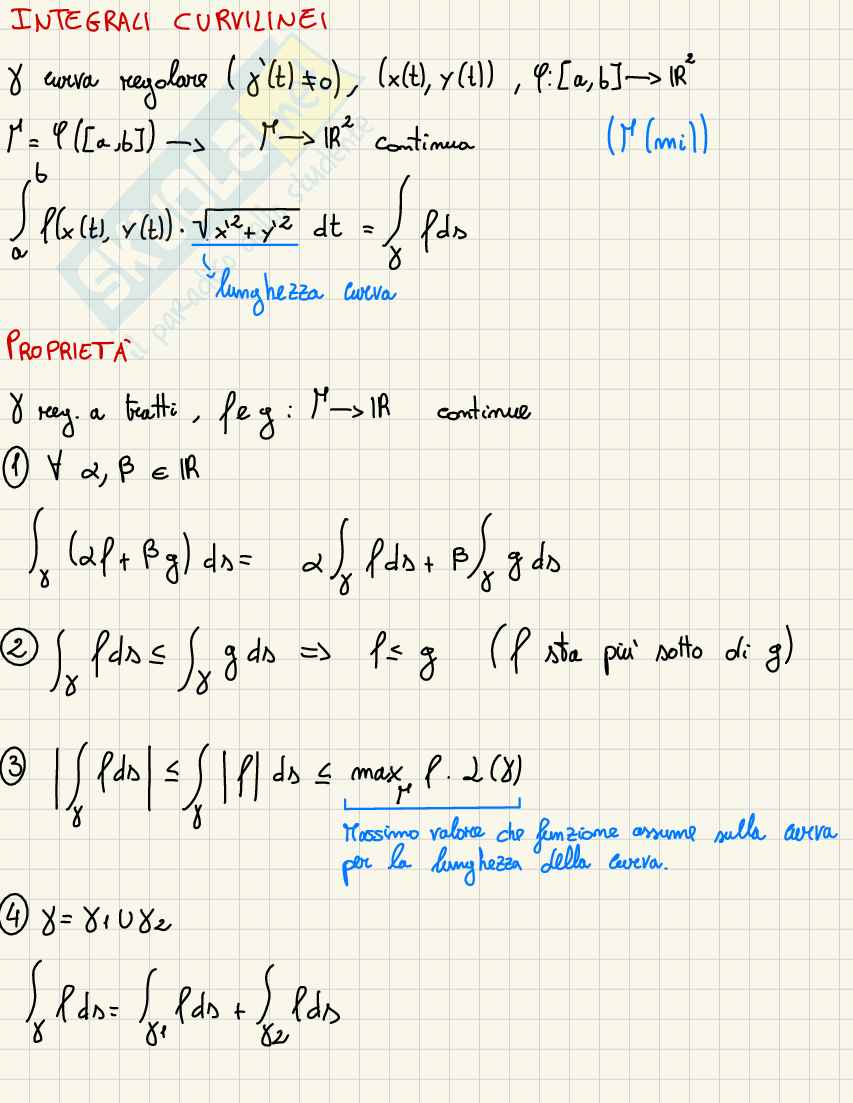 INTEGRALI CURVILINEI
γ curva regolare (γ'(t) ≠ 0), (x(t), y(t)), φ: [a, b] → ℝ²
Μ = φ([a, b]) → Μ → ℝ² continua (Μ (mi))
∫_a^b f(x(t), y(t)) · √(x'² + y'²) dt = ∫_γ f ds
↳ lunghezza curva
PROPRIETÀ
γ reg. a tratti, f e g : Μ → ℝ continue
① ∀ α, β ∈ ℝ
∫_γ (αf + βg) ds = α ∫_γ f ds + β ∫_γ g ds
② ∫_γ f ds ≤ ∫_γ g ds => f ≤ g (f sta più sotto di g)
③ |∫_γ f ds| ≤ ∫_γ |f| ds ≤ max_Μ f · L(γ)
Massimo valore che funzione assume sulla curva
per la lunghezza della curva.
④ γ = γ1 ∪ γ2
∫_γ f ds = ∫_γ1 f ds + ∫_γ2 f ds
SKUOLA.net
il paradiso dello studente